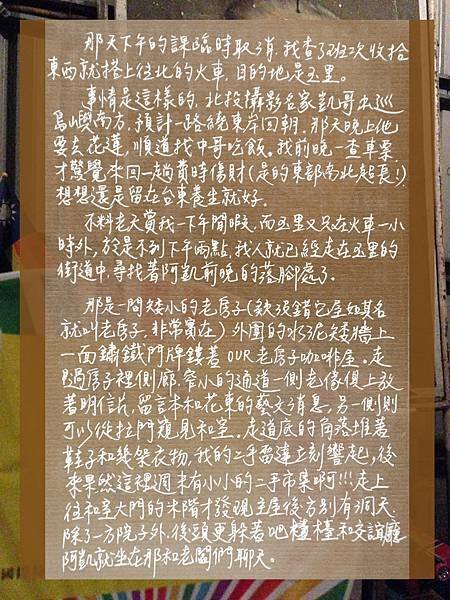 那天下午的課臨時取消，我查了班次收拾
東西就搭上往北的火車，目的地是玉里。
事情是這樣的，北投攝影名家凱哥出巡
島嶼南方，預計一路繞東岸回朝，那天晚上他
要去花蓮，順道找中哥吃飯。我前晚一查車票，
才驚覺來回一趟費時傷財（是的東部南北超長！）
想想還是留在台東養生就好。
不料老天賞我一下午閒暇，而玉里又只在火車一小
時外，於是不到下午兩點，我人就已經走在玉里的
街道中，尋找著阿凱前晚的落腳處了。
那是一間矮小的老房子（欸沒錯它屋如其名
就叫老房子，非常實在）外圍的水泥矮牆上
一面鏽鐵門牌鏤著OUR老房子咖啡屋。走
過房子裡側廊，窄小的通道一側老傢俱上放
著明信片，留言本和花東的藝文消息，另一側則
可以從拉門窺見和室。走道底的角落堆著
鞋子和幾架衣物，我的二手雷達立刻響起，後
來果然這裡週末有小小的二手市集啊!!!走上
往和室大門的木階才發現主屋後方別有洞天，
除了一方院子外，後頭更躲著吧檯和交誼廳
阿凱就坐在那和老闆們聊天。